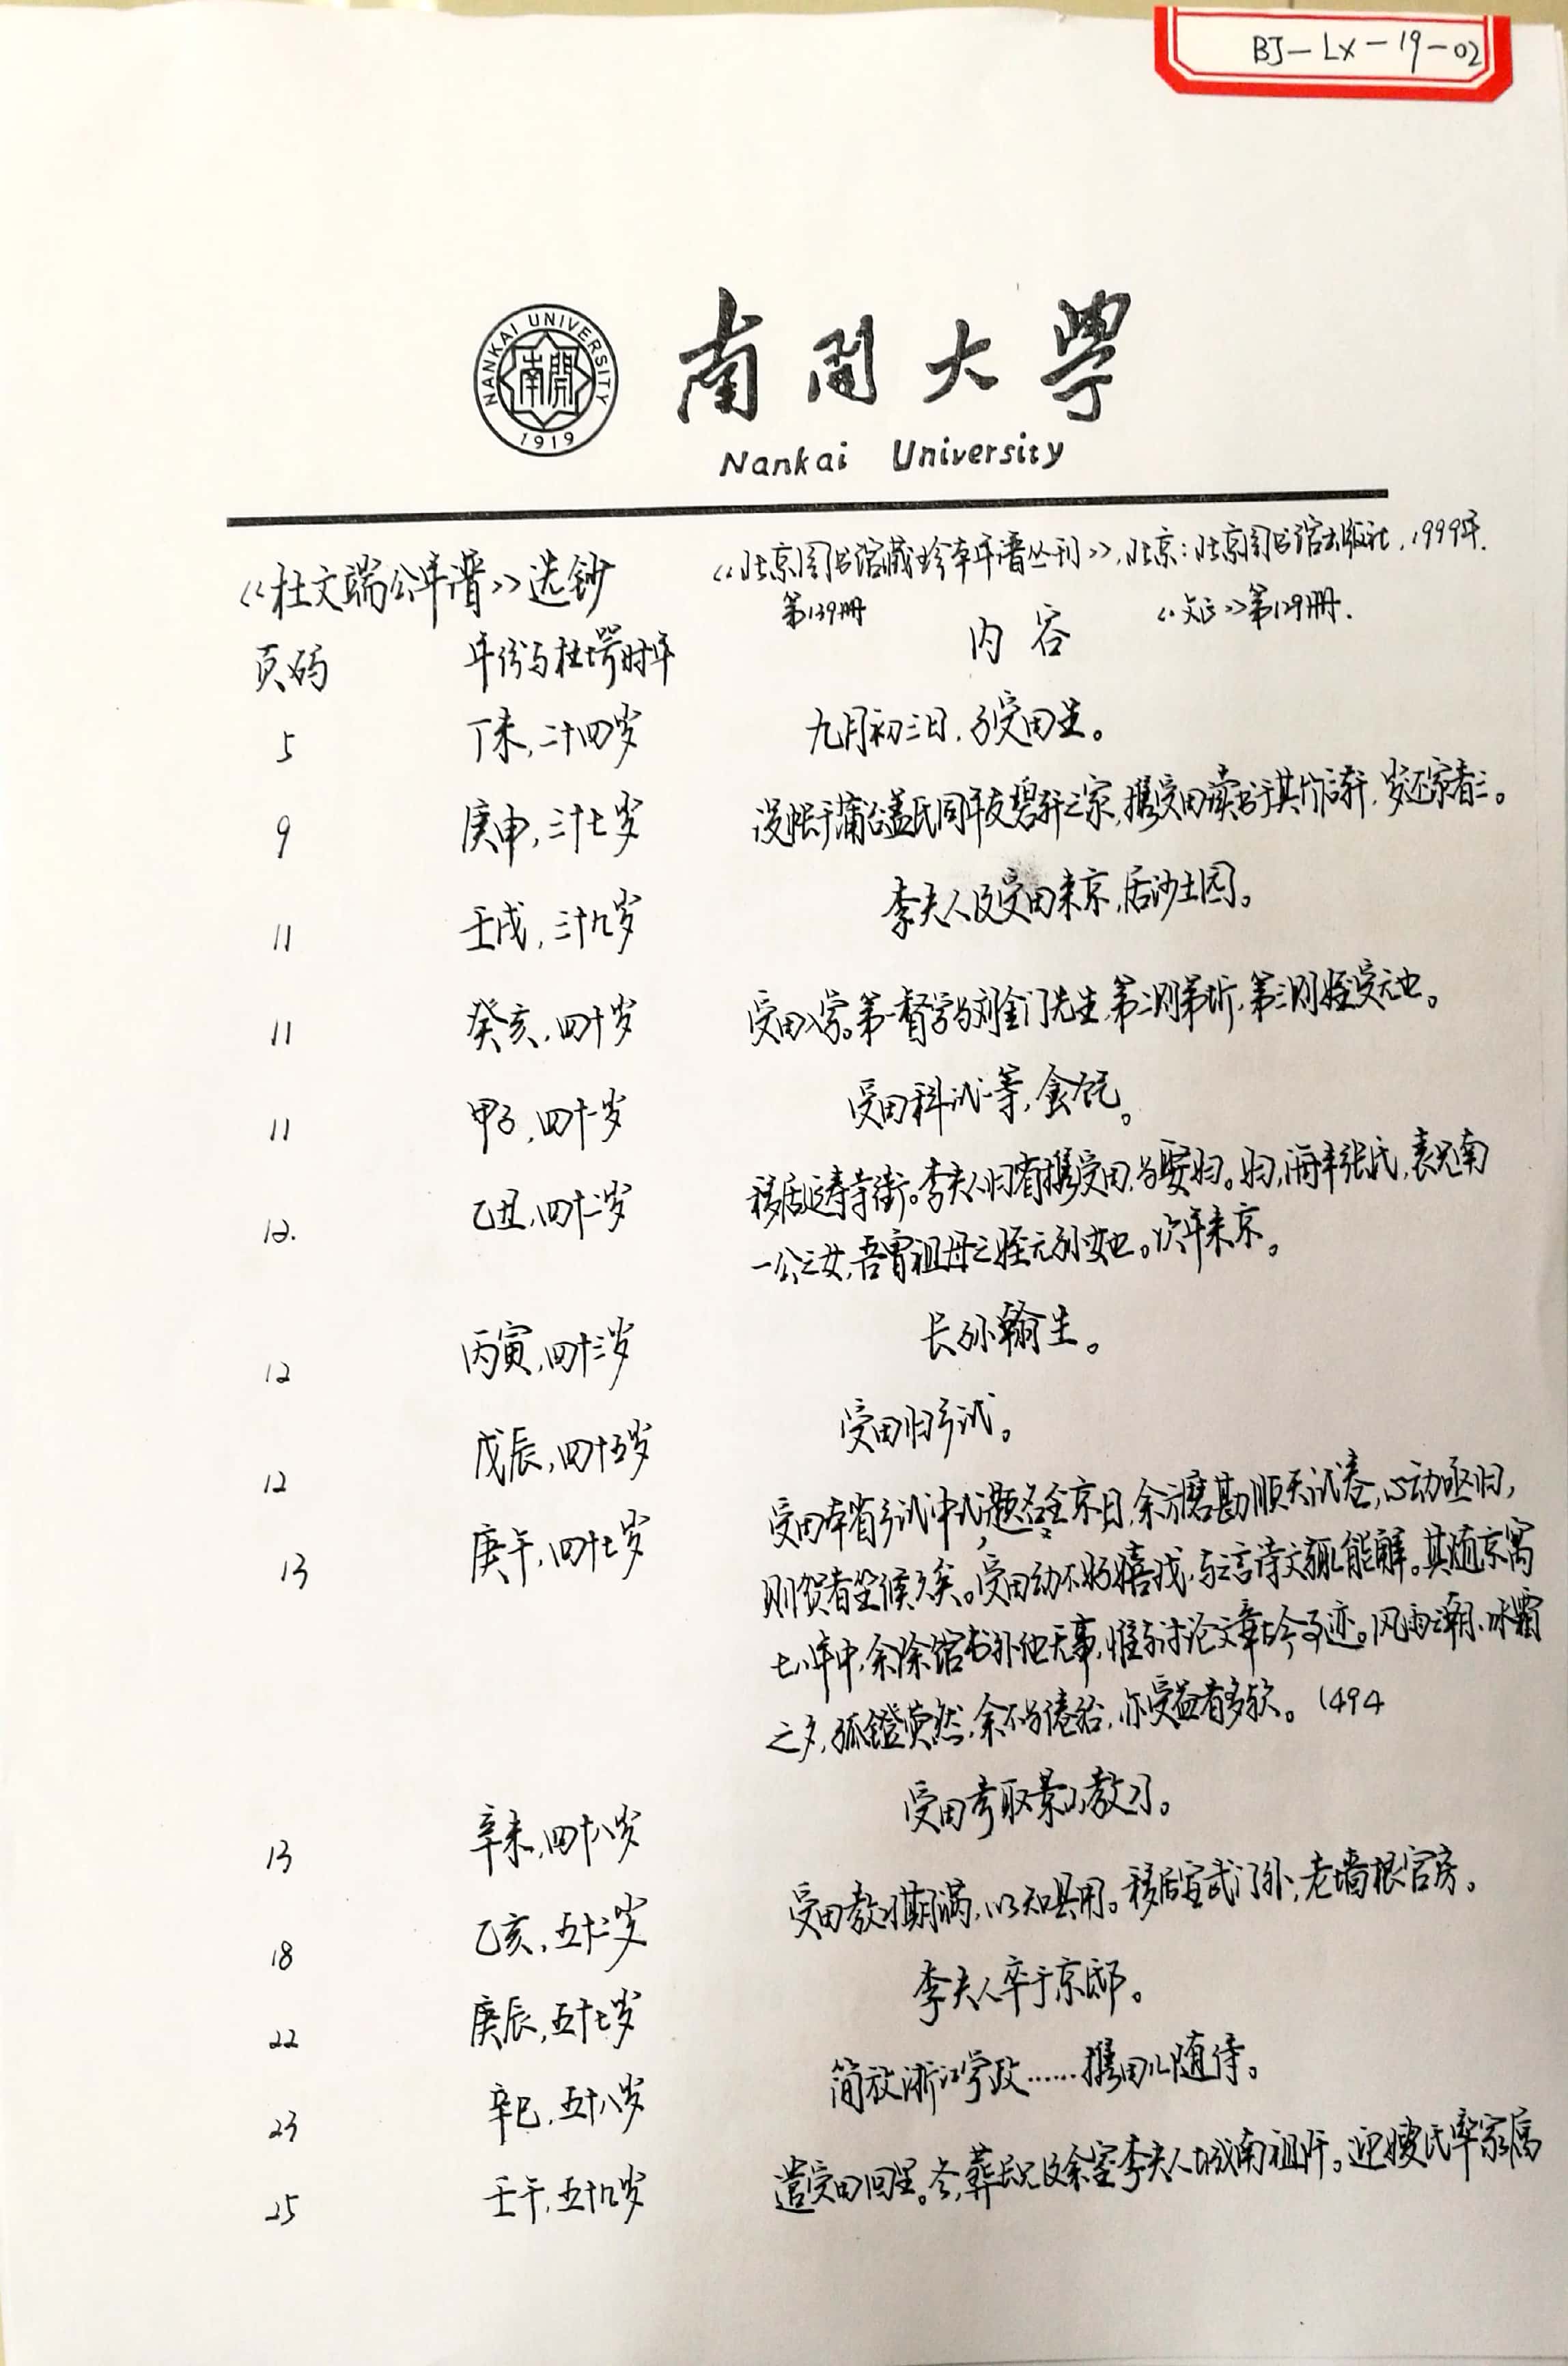 BJ-LX-19-02
NANKAI UNIVERSITY
南開
1919
南開大學
Nankai University
《杜文端公年谱》选钞
《北京图书馆藏珍本年谱丛刊》,北京:北京图书馆出版社,1999年.
第139册
第129册.
页码
年份与杜堮时年
内容
5
丁未,二十四岁
九月初三日,子受田生。
9
庚申,三十七岁
设帐于蒲台盖氏同年友碧轩之家,携受田读书于其竹轩,岁还家者三。
11
壬戌,三十九岁
李夫人及受田来京,居沙土园。
11
癸亥,四十岁
受田入学。第一督学为刘金门先生,第二则弟圻,第三则姪受元也。
11
甲子,四十一岁
受田科试一等,食饩。
12.
乙丑,四十二岁
移居延寿寺街。李夫人归省携受田,为娶妇。妇,海丰张氏,表兄南
一公之女,吾曾祖母之姪元孙女也。次年来京。
12
丙寅,四十三岁
长孙翰生。
12
戊辰,四十五岁
受田归乡试。
13
庚午,四十七岁
受田本省乡试中式,题名至京日,余方磨勘顺天试卷,心动亟归,
则贺者坐候久矣。受田幼不好嬉戏,与之言诗文辄能解。其随京寓
七八年中,余除馆书外他无事,惟与讨论文章古今事迹。风雨之朝,冰霜
之夕,孤镫荧然,余不为倦怠,亦受益者多欤。1494
13
辛未,四十八岁
受田考取景山教习。
18
乙亥,五十二岁
受田教习期满,以知县用。移居宣武门外,老墙根官房。
22
庚辰,五十七岁
李夫人卒于京邸。
23
辛巳,五十八岁
简放浙江学政……携田儿随侍。
25
壬午,五十九岁
遣受田回里。冬,葬长兄及余室李夫人城南祖阡。迎嫂氏率家属